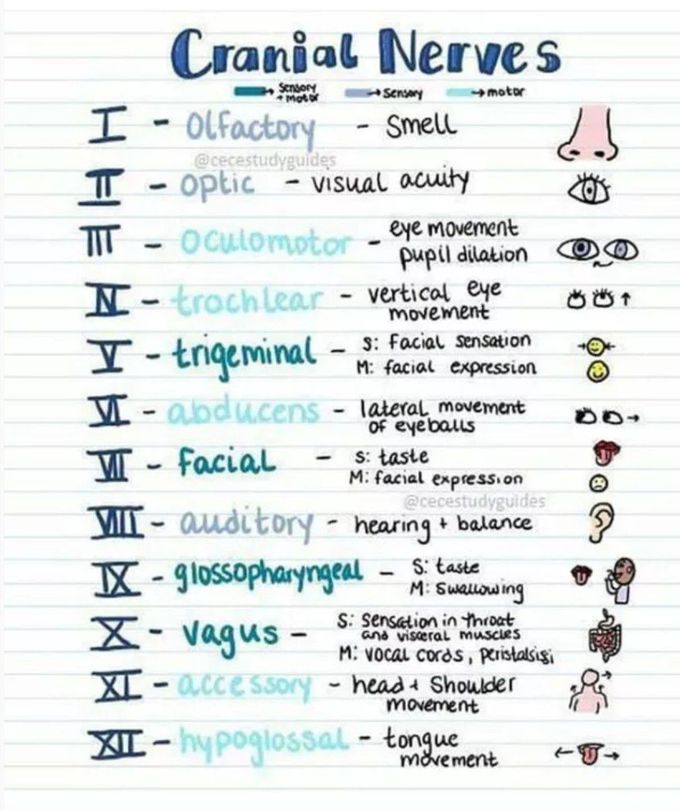 Cranial Nerves
→ Sensory + motor → Sensory → motor
I - Olfactory - Smell
@cecestudyguides
II - optic - visual acuity
III - oculomotor - eye movement
pupil dilation
IV - trochlear - vertical eye
movement
V - trigeminal - S: Facial sensation
M: facial expression
VI - abducens - lateral movement
of eyeballs
VII - facial - S: taste
M: facial expression
@cecestudyguides
VIII - auditory - hearing + balance
IX - glossopharyngeal - S: taste
M: Swallowing
X - vagus - S: Sensation in throat
and visceral muscles
M: vocal cords, peristalsis
XI - accessory - head + Shoulder
movement
XII - hypoglossal - tongue
movement